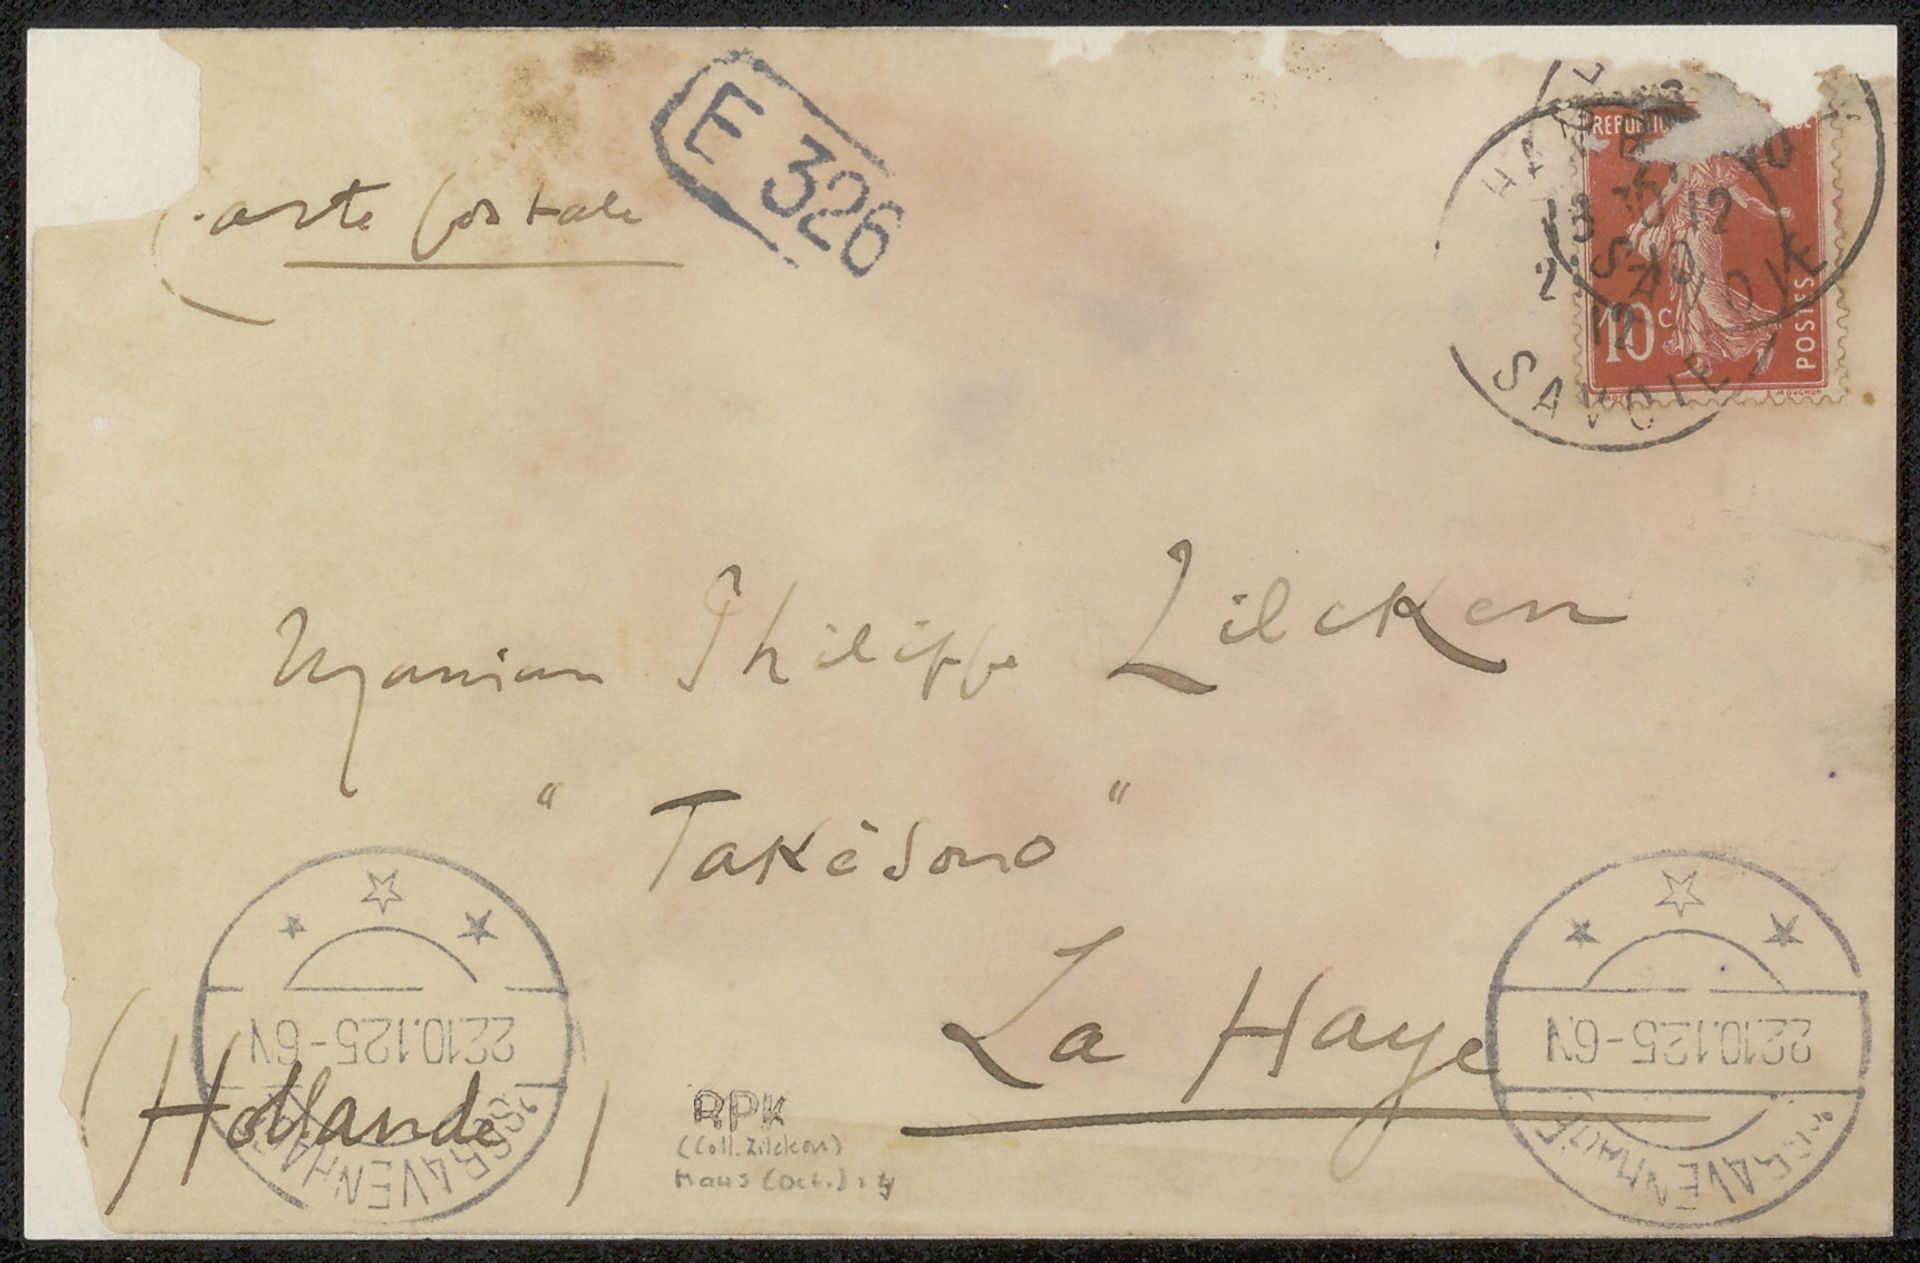 E 326
Carte postale
REPUBLIQUE
10c
POSTES
SAVOIE
SAVOIE
Monsieur Philippe Zilcken
"Takésono"
La Haye
(Hollande)
22.10.12 5-6N
'SGRAVENHAGE
22.10.12 5-6N
'SGRAVENHAGE
RPK
(Coll. Zilcken)
Maus (Oct.): 4